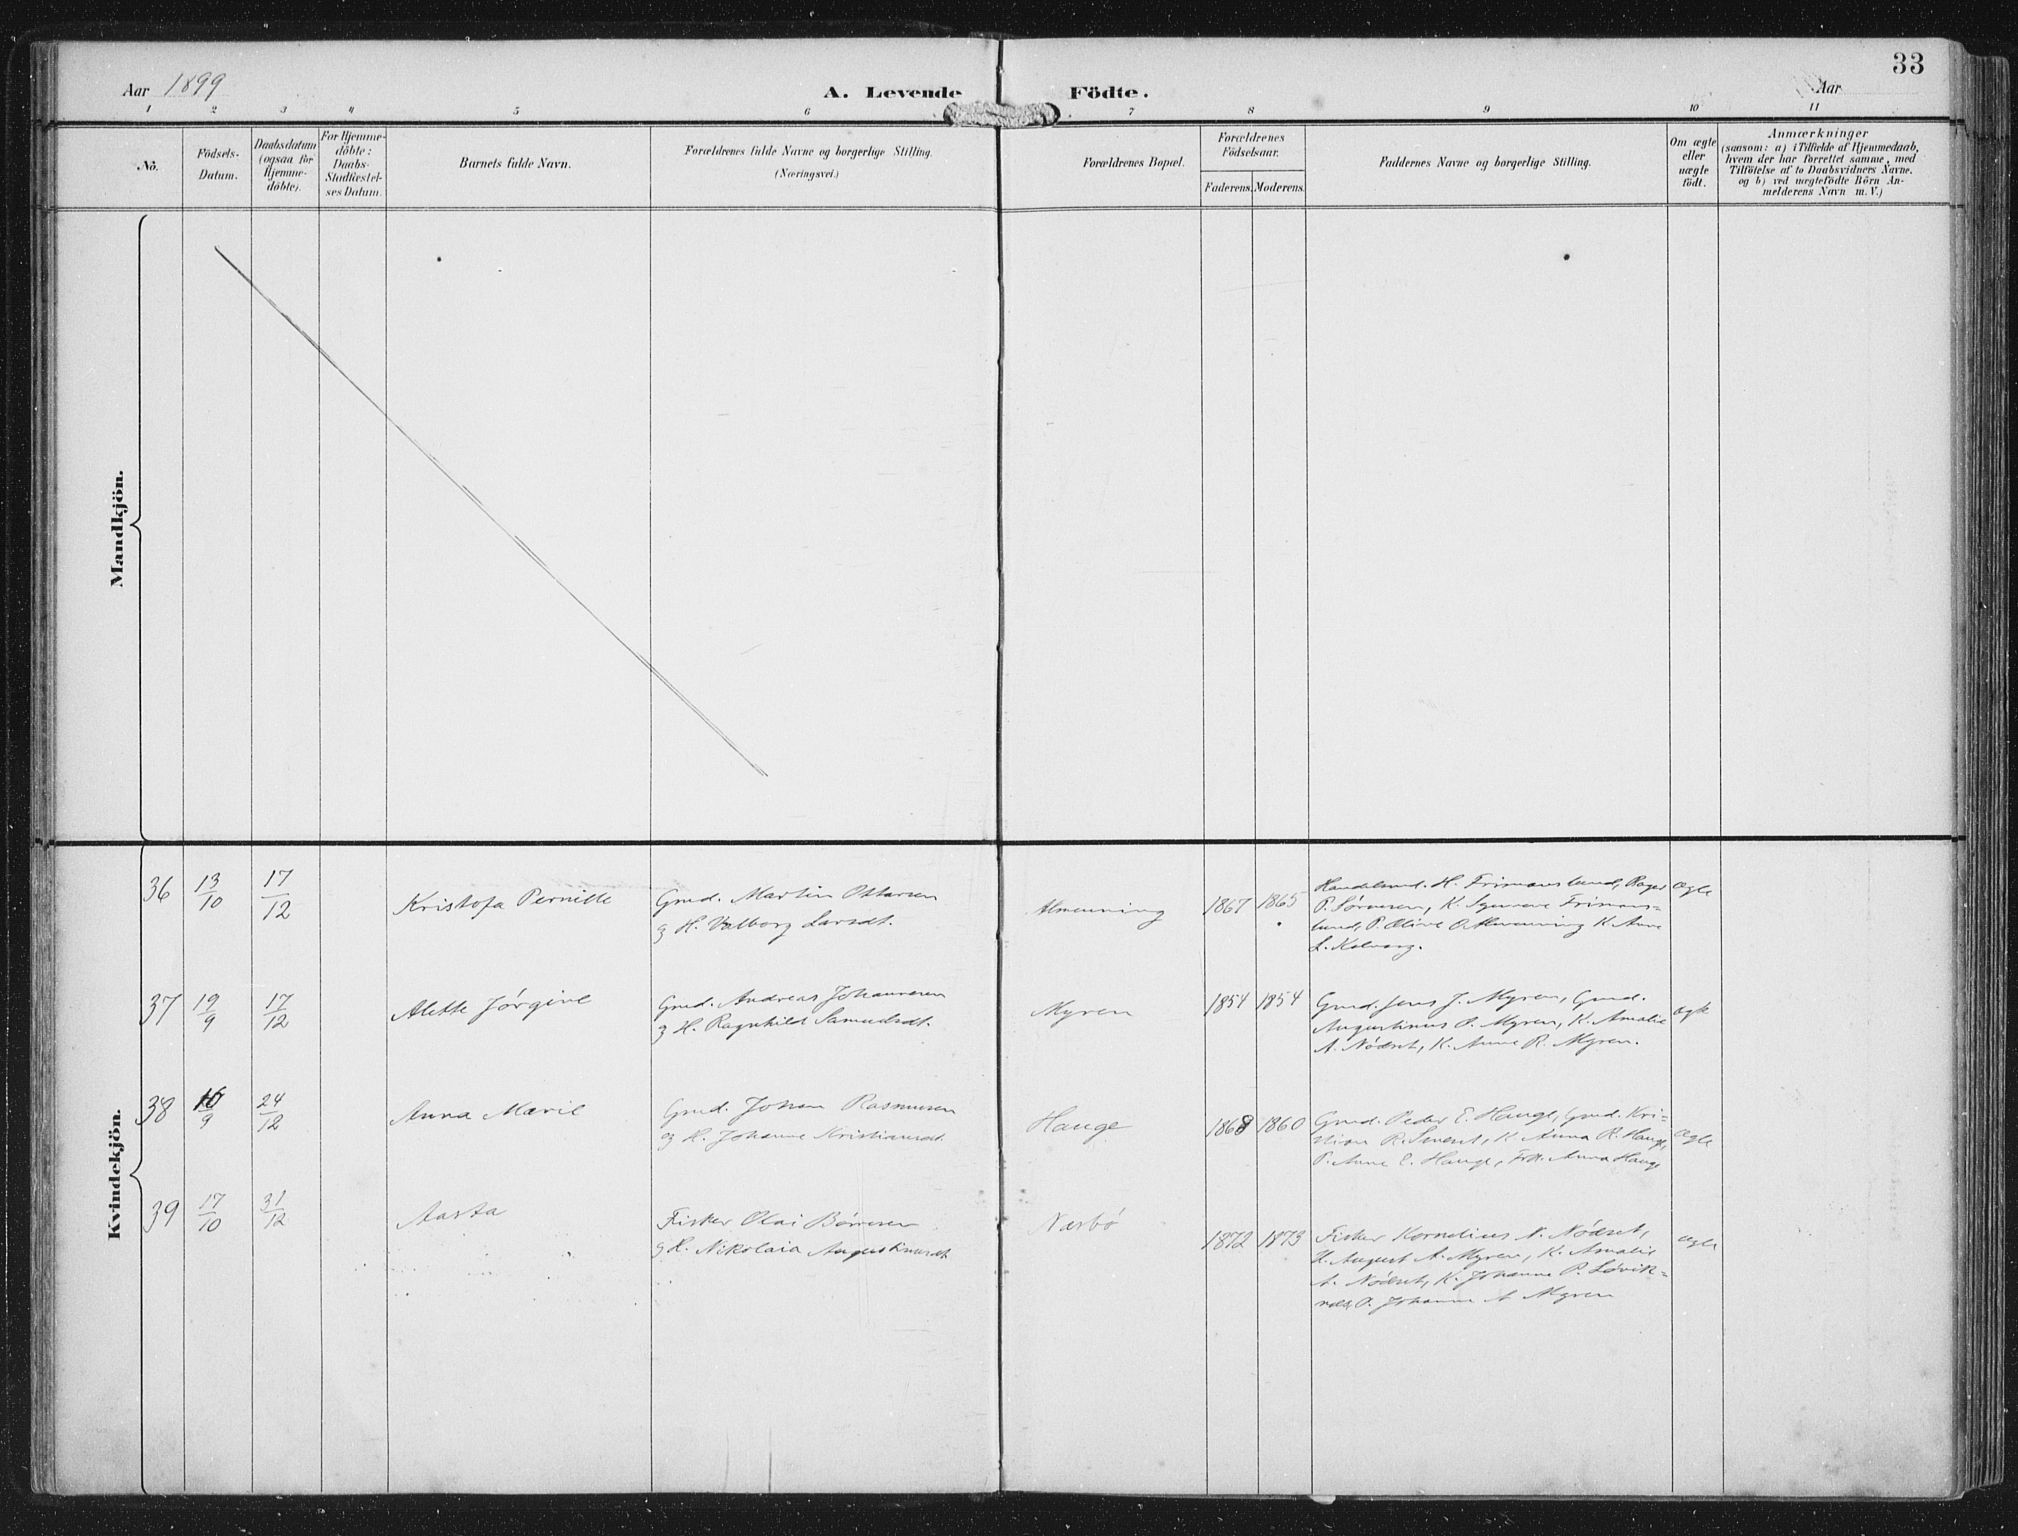 33
Aar 1899
A. Levende Födte.
Aar
1 2 3 4 5 6 7 8 9 10 11
No.
Födsels-
Datum.
Daabsdatum
(ogsaa for
Hjemme-
döbte).
For Hjemme-
döbte:
Daabs-
Stadfæstel-
ses Datum.
Barnets fulde Navn.
Forældrenes fulde Navne og borgerlige Stilling.
(Næringsvei.)
Forældrenes Bopæl.
Forældrenes
Födselsaar.
Faderens. Moderens.
Faddernes Navne og borgerlige Stilling.
Om ægte
eller
uægte
födt.
Anmærkninger
(saasom: a) i Tilfælde af Hjemmedaab,
hvem der har forrettet samme, med
Tilföielse af to Daabsvidners Navne.
og b) ved uægtefödte Börn An-
melderens Navn m. V.)
Mandkjön.
Kvindekjön.
36 13/10 17/12 Kristofa Pernille
Gmd. Martin Ottersen
g H. Valborg Larsdt.
Almenning 1867 1865
Handelsmd. H. Frimanslund,
P. Sørensen, K. Synneve Frimans-
lund, P. Oline Almenning K. Anne
L. Kalvaag.
Ægte
37 19/9 17/12 Alette Jørgine
Gmd. Andreas Johannesen
g H. Ragnhild Samuelsdt.
Myren 1854 1854
Gmd. Jens J. Myren, Gmd.
Augustinus O. Myren, K. Amalie
A. Nødset, K. Anne R. Myren.
ægte
38 /9 24/12 Anna Marie
Gmd. Johan Rasmusen
og H. Johanne Kristiansdt.
Hauge 1868 1860
Gmd. Peder E. Hauge, Gmd. Kri-
stian R. K. Anna R. Hauge,
P. Anne E. Hauge, Anna Hauge
Ægte
39 17/10 31/12 Aasta
Fisker Olai Børresen
g H. Nikolaia Augustinusdt
Næsbø 1872 1873
Fisker Kornelius N. Nødset,
U. August A. Myren, K. Amalie
A. Nødset, K. Johanne P. Løvik-
næs, P. Johanne A Myren
ægte